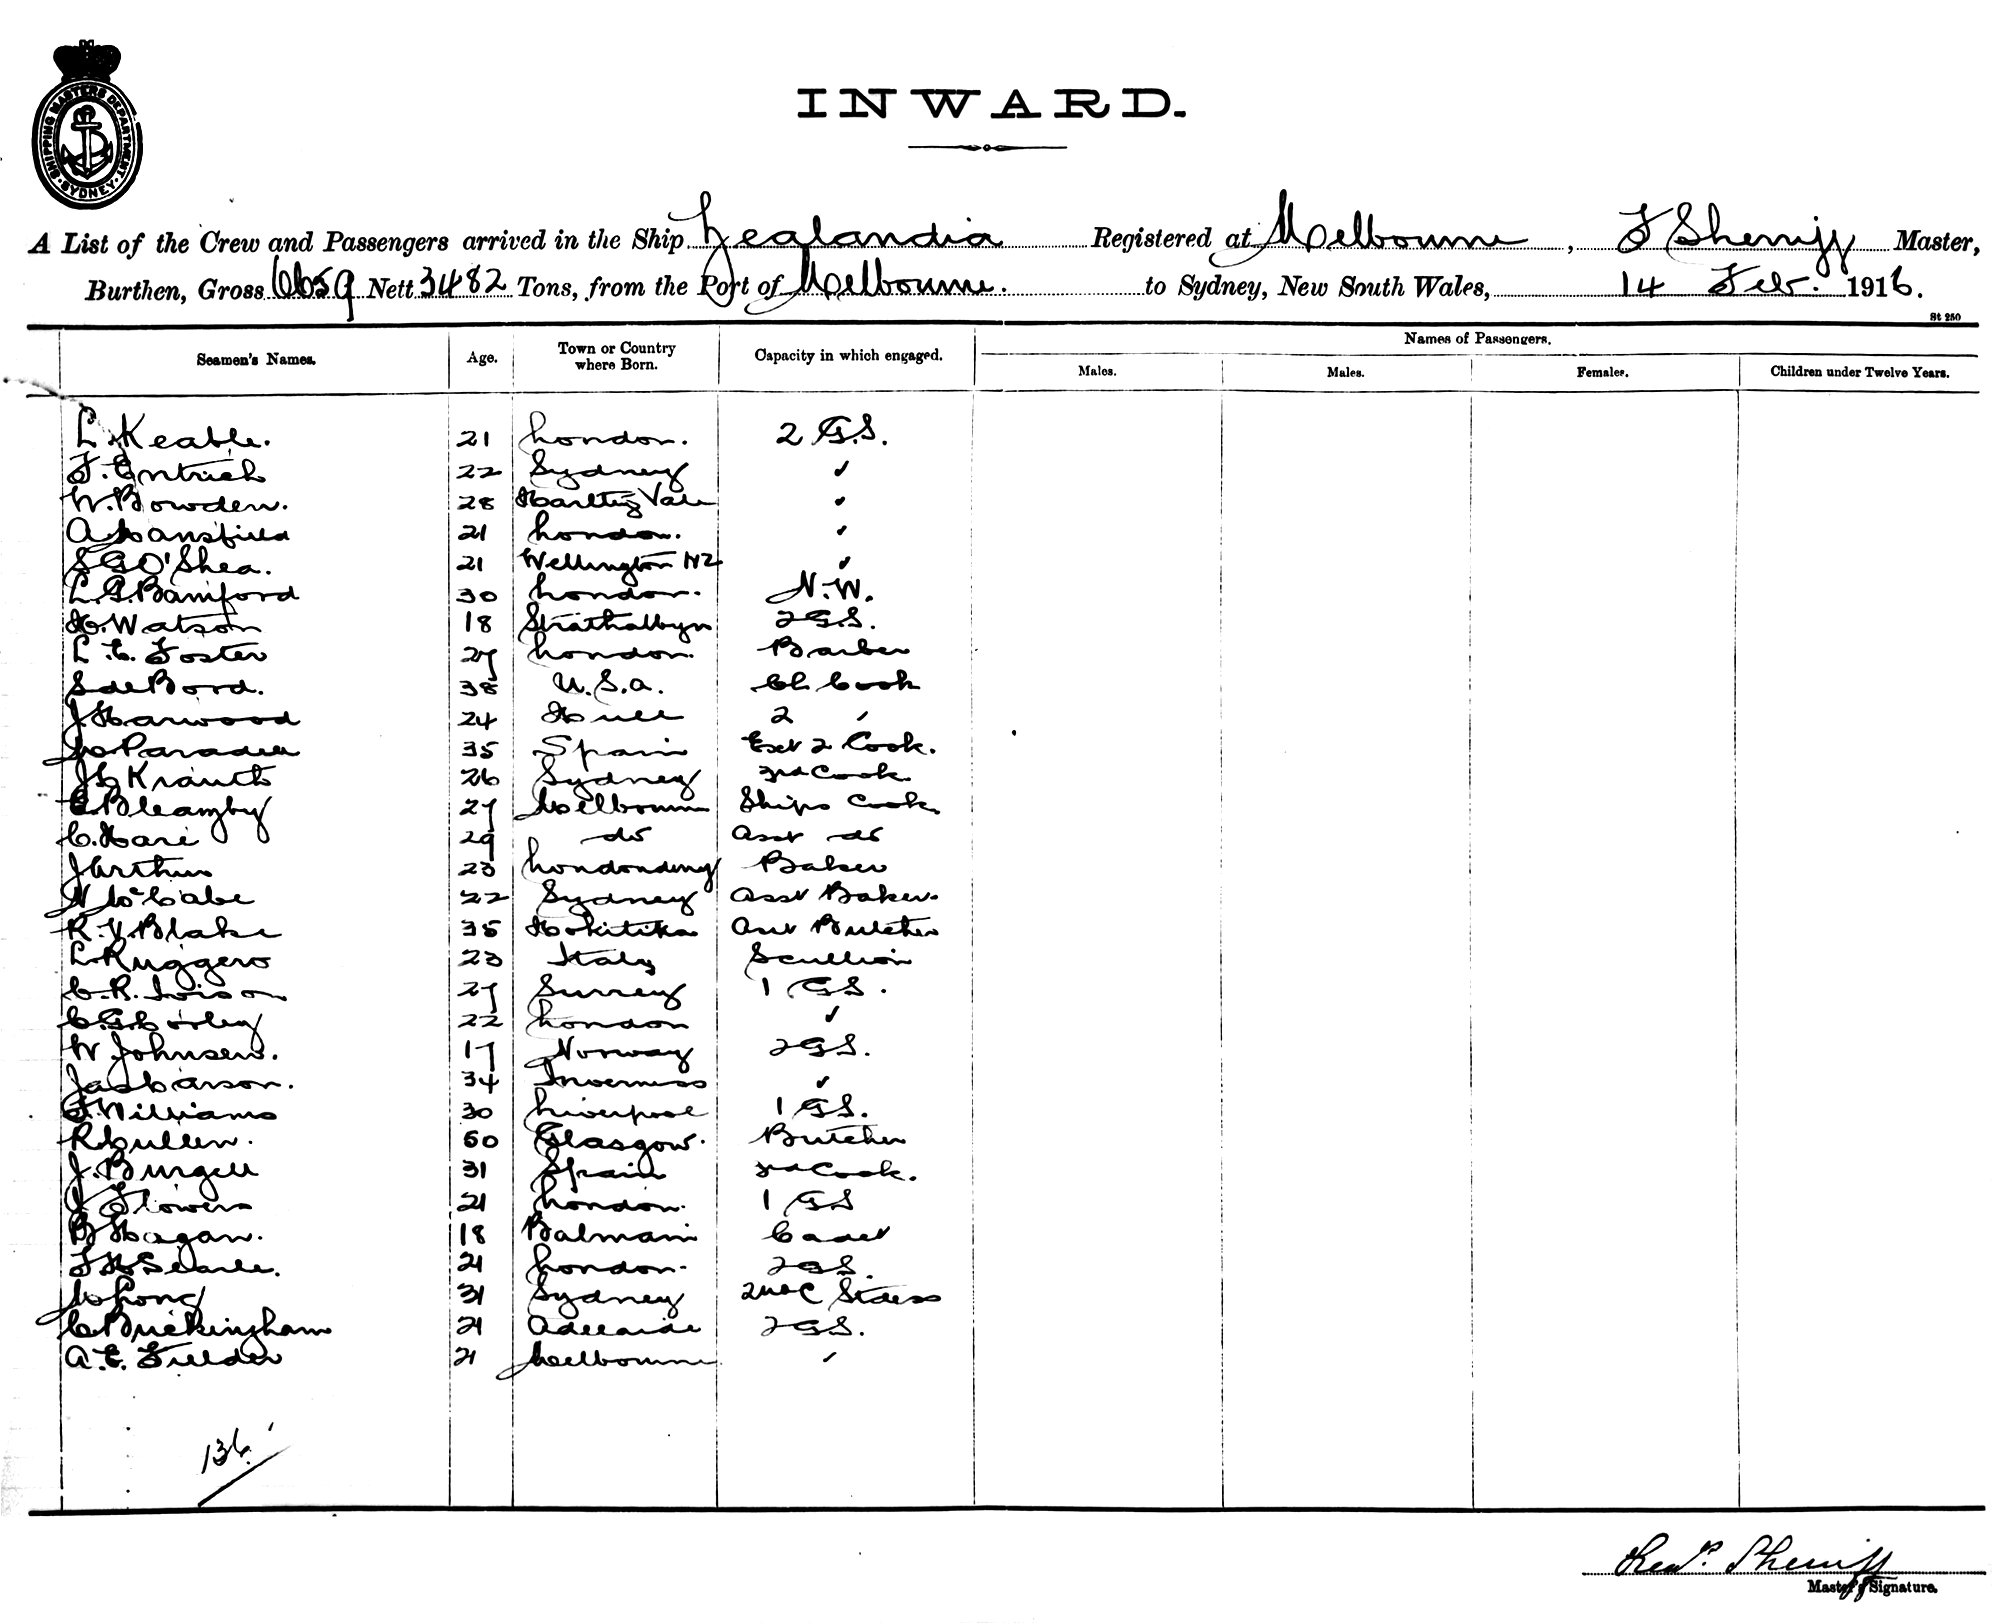 SHIPPING MASTERS DEPARTMENT
· SYDNEY ·
INWARD.
A List of the Crew and Passengers arrived in the Ship Zealandia Registered at Melbourne, F Sherriff Master,
Burthen, Gross 6659 Nett 3482 Tons, from the Port of Melbourne. to Sydney, New South Wales, 14 Feb. 1916.
St 250
Seamen's Names. Age. Town or Country where Born. Capacity in which engaged. Names of Passengers.
Males. Males. Females. Children under Twelve Years.
L. Keable. 21 London. 2 G.S.
F. Entrich 22 Sydney "
W. Bowden. 28 Hartley Vale "
A Mansfield 21 London. "
S G O'Shea. 21 Wellington NZ "
L. G. Bamford 30 London. N.W.
H. Watson 18 Strathalbyn 2 G.S.
L. E. Foster 27 London. Barber
S de Bord. 38 U.S.A. Ch Cook
J Harwood 24 Hull 2 "
M 35 Spain Ext 2 Cook.
J Krauth 26 Sydney 3rd Cook
E Bleazby 27 Melbourne Ships Cook.
C. Hare 29 do Asst do
J Arthur 23 Londonderry Baker
N McCabe 22 Sydney Asst Baker.
R. V. Blake 35 Hokitika Asst Butcher
L. Ruggero 23 Italy Scullion
C. R. Ivison 27 Surrey 1 G.S.
C. G. Corley 22 London "
W Johnsen. 17 Norway 2 G.S.
Jas Carson. 34 Inverness "
F. Williams 30 Liverpool 1 G.S.
R Cullen. 50 Glasgow. Butcher
J. 31 Spain 3rd Cook.
J Flowers 21 London. 1 G S
B Hagan. 18 Balmain Cadet
F H Searle. 21 London. 2 G.S.
M Long 31 Sydney 2nd C Stdess
C Buckingham 21 Adelaide 2 G.S.
A. E. Fielder 21 Melbourne "
136.
Geo. Sherriff
Master's Signature.